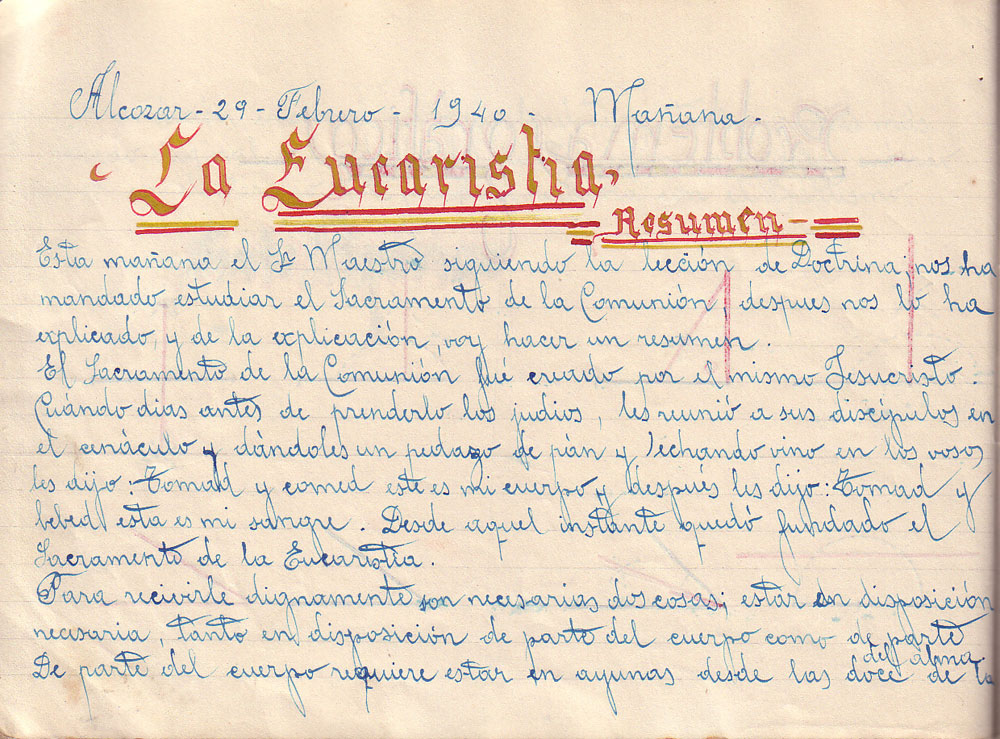 Alcozar - 29 - Febrero - 1940 - Mañana -
La Eucaristia
Resumen
Esta mañana el Sr Maestro siguiendo la lección de Doctrina, nos ha
mandado estudiar el Sacramento de la Comunión, despues nos lo ha
explicado, y de la explicación, voy hacer un resumen.
El Sacramento de la Comunión fué creado por el mismo Jesucristo.
Cuándo dias antes de prenderlo los judios, les reunió a sus discípulos en
el cenáculo y dándoles un pedazo de pán y echando vino en los vosos
les dijo: Tomad y comed este es mi cuerpo y después les dijo: Tomad y
bebed esta es mi sangre. Desde aquel instante quedó fundado el
Sacramento de la Eucaristía.
Para recivirle dignamente son necesarias dos cosas; estar en disposición
necesaria, tanto en disposición de parte del cuerpo como de parte
del alma
De parte del cuerpo requiere estar en ayunas desde las doce de la